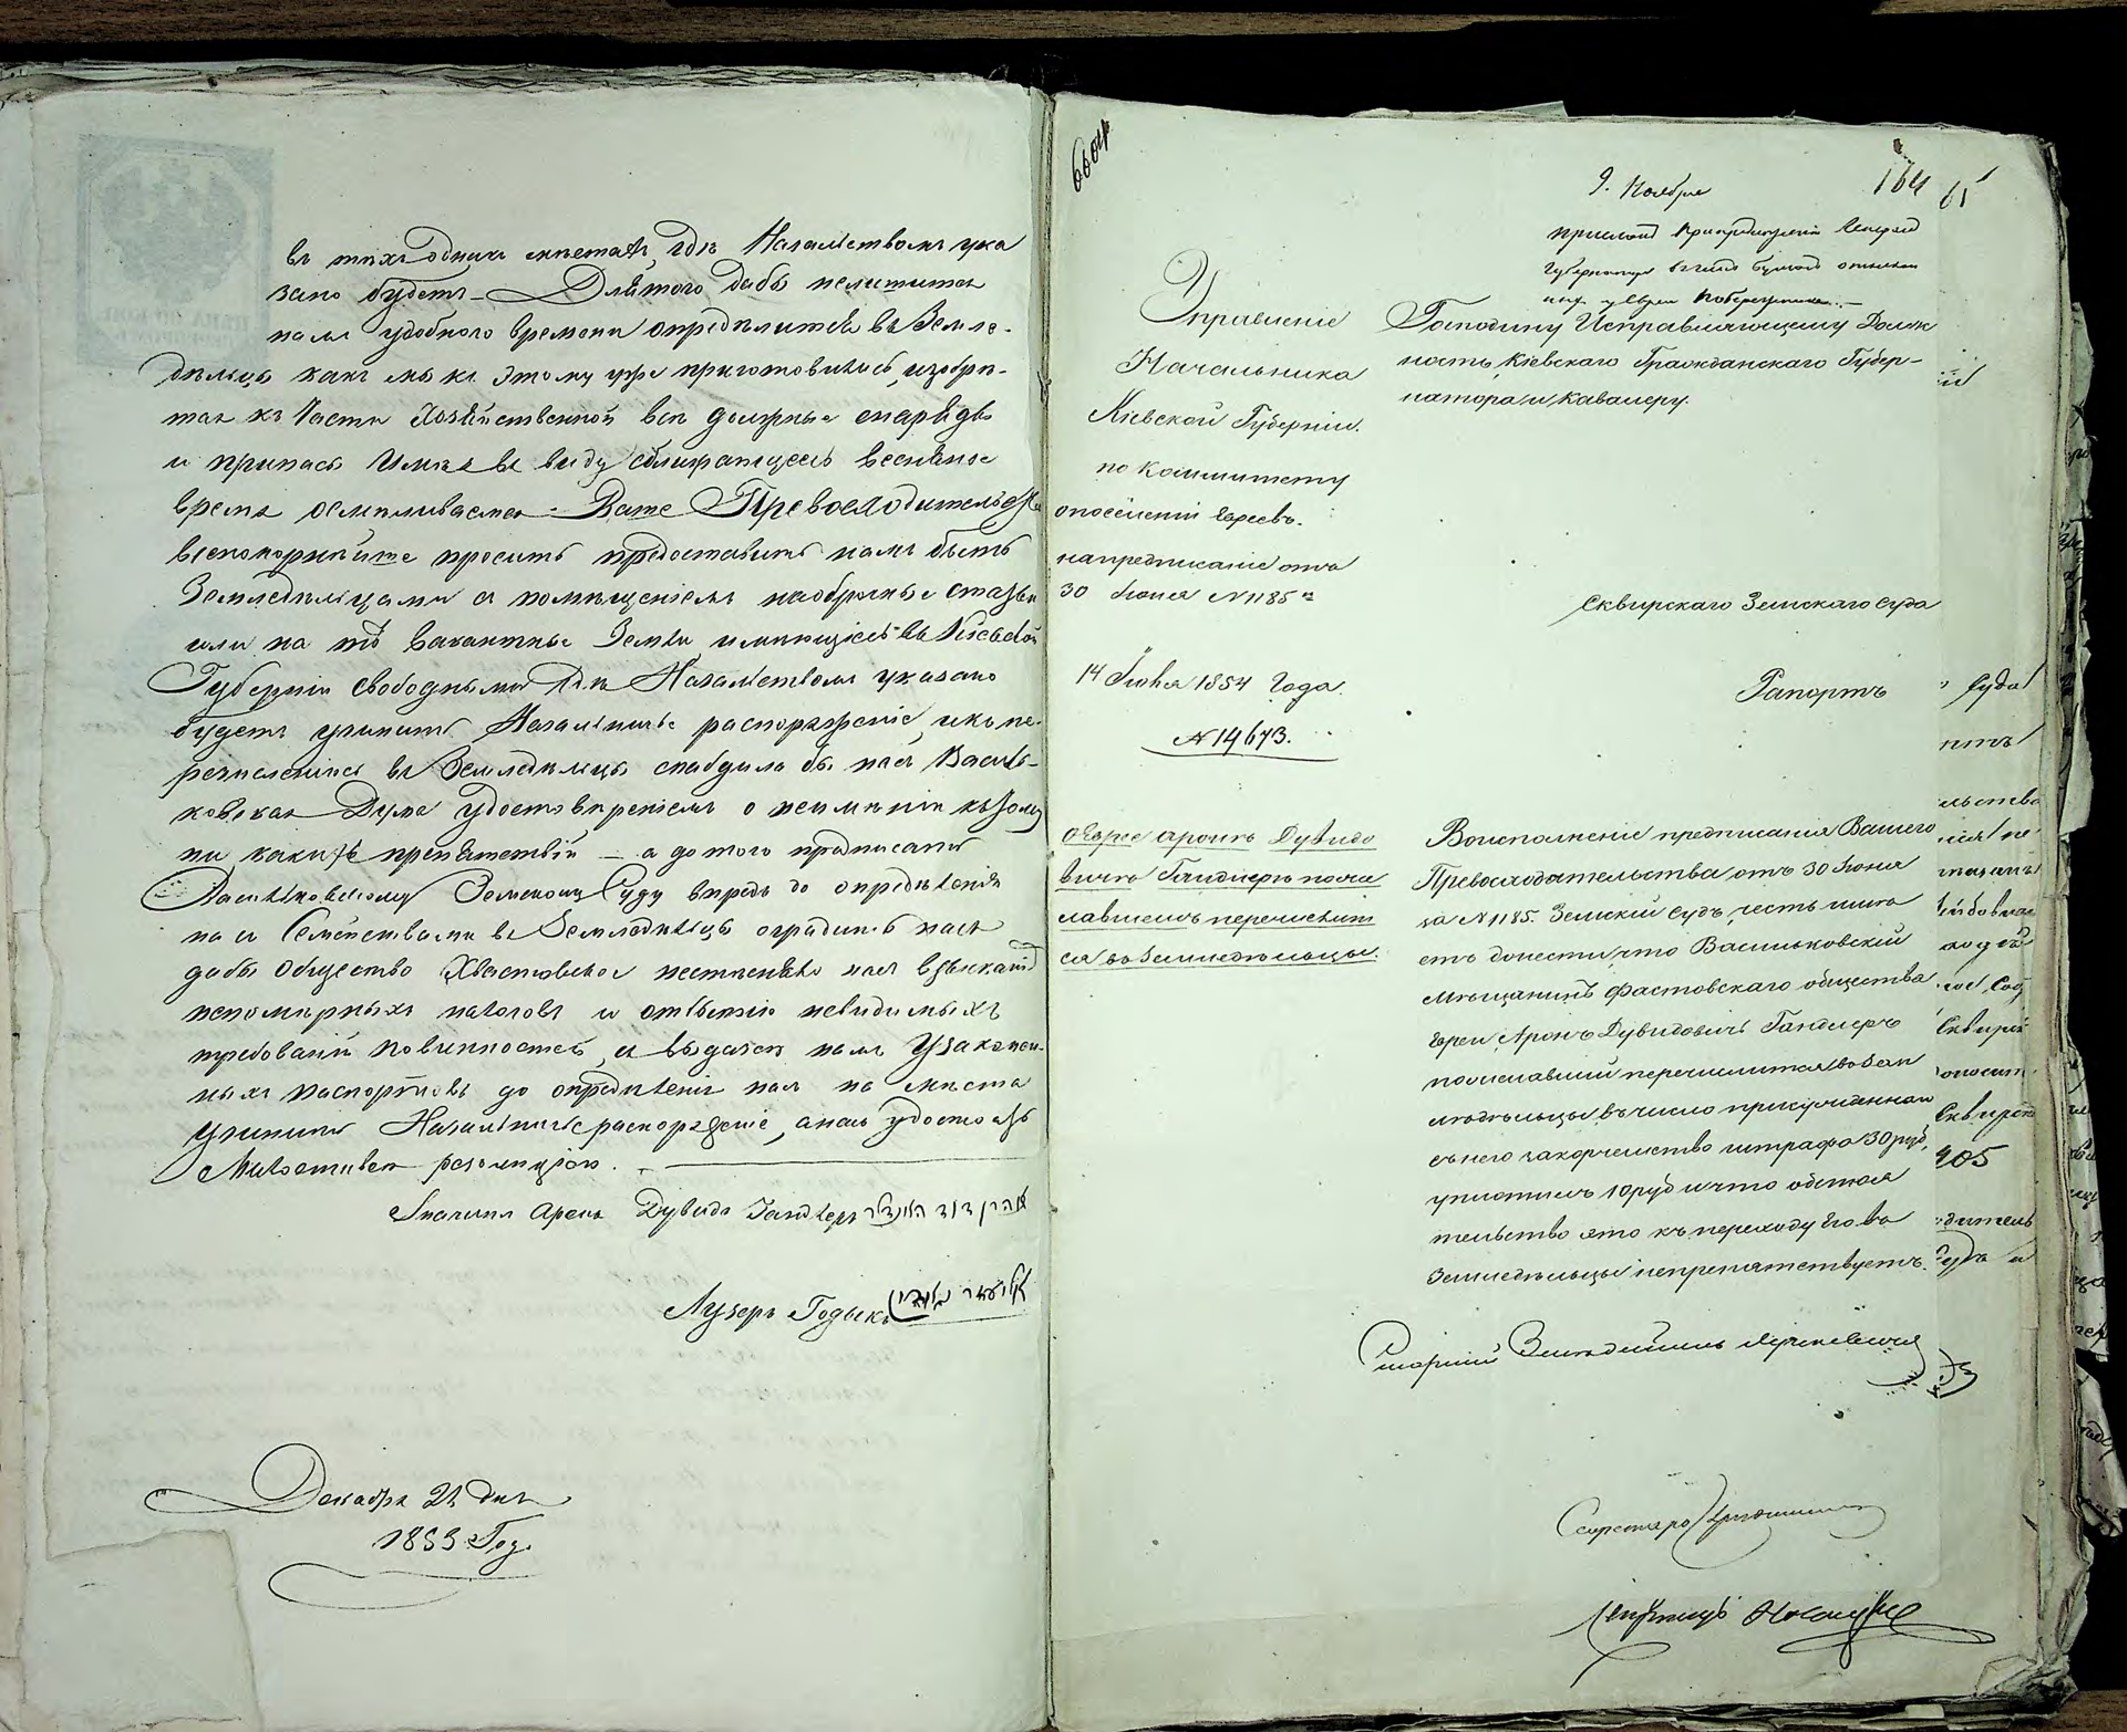 въ тѣхъ однихъ мѣстахъ, гдѣ Начальствомъ ука
зано будетъ — Для того дабы не лишится
намъ удобного времени определится въ Земле-
дѣльцы какъ мы къ этому уже приготовились, изобрѣ-
тая къ части Хозяйственной все должные снаряды
и припасы Имея въ виду сближающеесь весеннее
время осмеливаемся Ваше Превосходительство
всепокорнейше просить предоставить намъ быть
Земледѣльцами съ помещениемъ на оброчные статьи
или на тѣ вакантные Земли имеющіесь въ Кіевской
Губерніи свободными гдѣ Начальствомъ указано
будетъ учинить Начальничье распоряженіе, и къ пе-
речисленію въ Земледѣльцы снабдила бы насъ Василь-
ковская Дума удостовереніемъ о неимѣніи къ тому
ни какихъ препятствій — а до того предписать
Васильковскому Земскому Суду впредь до определенія
насъ Семействами въ Земледѣльцы оградить насъ
дабы общество Хвастовское не стесняло насъ взысканіемъ
непомерныхъ налоговъ и невидимыхъ
требованій повинностей, и выдачею намъ Узаконен-
ныхъ паспортовъ до определенія насъ на места
Учинить Начальничье распоряженіе, а насъ удостоить
Милостивою резолюціею.
Аронъ Дувидъ Гандлеръ אהרן דוד האנדלר
Лузеръ Годыкъ
Декабря 21 дня
1853 Год.
6604
9. Ноября
164
65
Управленіе
Начальника
Кіевской Губерніи.
по Коммитету
о поселеніи Евреевъ.
на предписаніе отъ
30 Іюня №1185го
14 Іюля 1854 Года.
№ 14673.
О Еврее Аронѣ Дувидо
вичѣ Гандлерѣ поже
лавшемъ перечислит
ся въ Земледельцы.
Господину Исправляющему Долж
ность Кіевскаго Гражданскаго Губер-
натора и Кавалеру.
Сквирскаго Земскаго Суда
Рапортъ
Во исполненіе предписанія Вашего
Превосходительства отъ 30 Іюня
за №1185. Земскій Судъ честь имѣ
етъ донести, что Васильковскій
мѣщанинъ Фастовскаго общества
Еврей Аронъ Дувидовичъ Гандлеръ
пожелавшій перечислится въ Зем
ледѣльцы въ число присужденнаго
съ него за корчемство штрафа 30 руб,
уплатилъ 10 руб и что обстоя
тельство это къ переходу Его въ
Земледѣльцы непрепятствуетъ.
Старшій
Секретарь
Суда
405